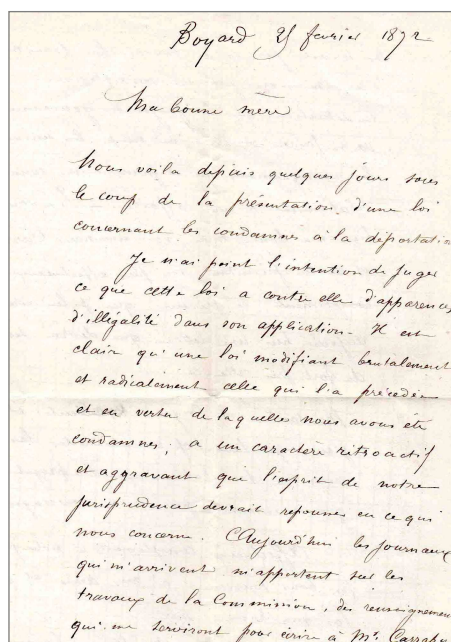 Boyard 25 fevrier 1872
Ma bonne mère
Nous voila depuis quelques jours sous
le coup de la présentation d'une loi
concernant les condamnés à la déportation
Je n'ai point l'intention de juger
ce que cette loi a contre elle d'apparences
d'illégalité dans son application. Il est
clair qu'une loi modifiant brutalement
et radicalement celle qui l'a précédée
et en vertu de laquelle nous avons été
condamnés, a un caractère rétroactif
et aggravant que l'esprit de notre
jurisprudence devrait repousser en ce qui
nous concerne. Aujourd'hui les journaux
qui m'arrivent m'apportent sur les
travaux de la Commission, des renseignements
qui me serviront pour écrire à Mr.